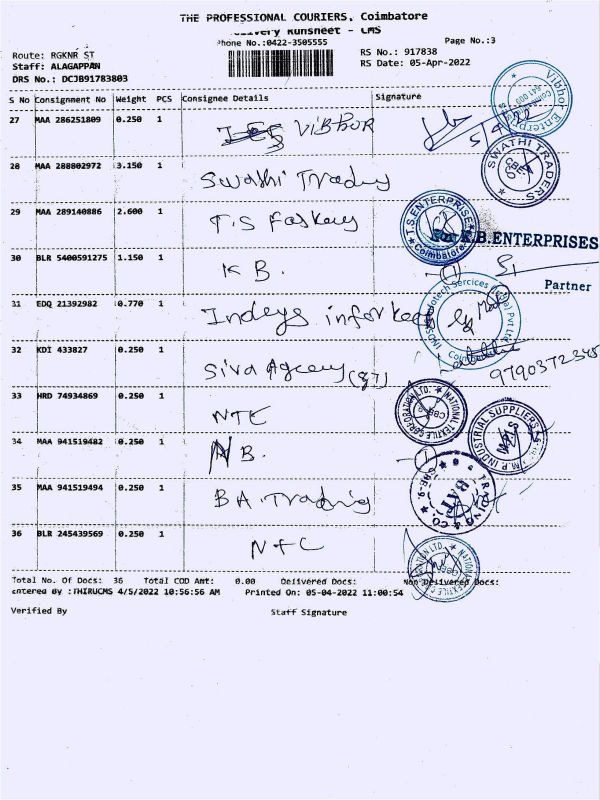 THE PROFESSIONAL COURIERS, Coimbatore
Delivery Runsheet - CMS
Phone No.:0422-3505555
Page No.:3
Route: RGKNR ST
RS No.: 917838
Staff: ALAGAPPAN
RS Date: 05-Apr-2022
DRS No.: DCJB91783803
S No Consignment No Weight PCS Consignee Details Signature
27 MAA 286251809 0.250 1 VIBHOR
5/4/22
28 MAA 288802972 3.150 1 Swathi Trading
SWATHI TRADERS
CBE
29 MAA 289140886 2.600 1 T.S
T.S.ENTERPRISE
Coimbatore
For K.B.ENTERPRISES
30 BLR 5400591275 1.150 1 K B.
Partner
31 EDQ 21392982 0.770 1
32 KDI 433827 0.250 1 Siva Agency (87)
9790372345
33 HRD 74934869 0.250 1 NTC
NATIONAL TEXTILE CORPORATION LTD.
34 MAA 941519482 0.250 1 N B.
M.P INDUSTRIAL SUPPLIERS
35 MAA 941519494 0.250 1 B A. Trading
BAT
TRADING & CO.
36 BLR 245439569 0.250 1 NTC
Total No. Of Docs: 36 Total COD Amt: 0.00 Delivered Docs: Non Delivered Docs:
Entered By :THIRUCMS 4/5/2022 10:56:56 AM Printed On: 05-04-2022 11:00:54
Verified By Staff Signature